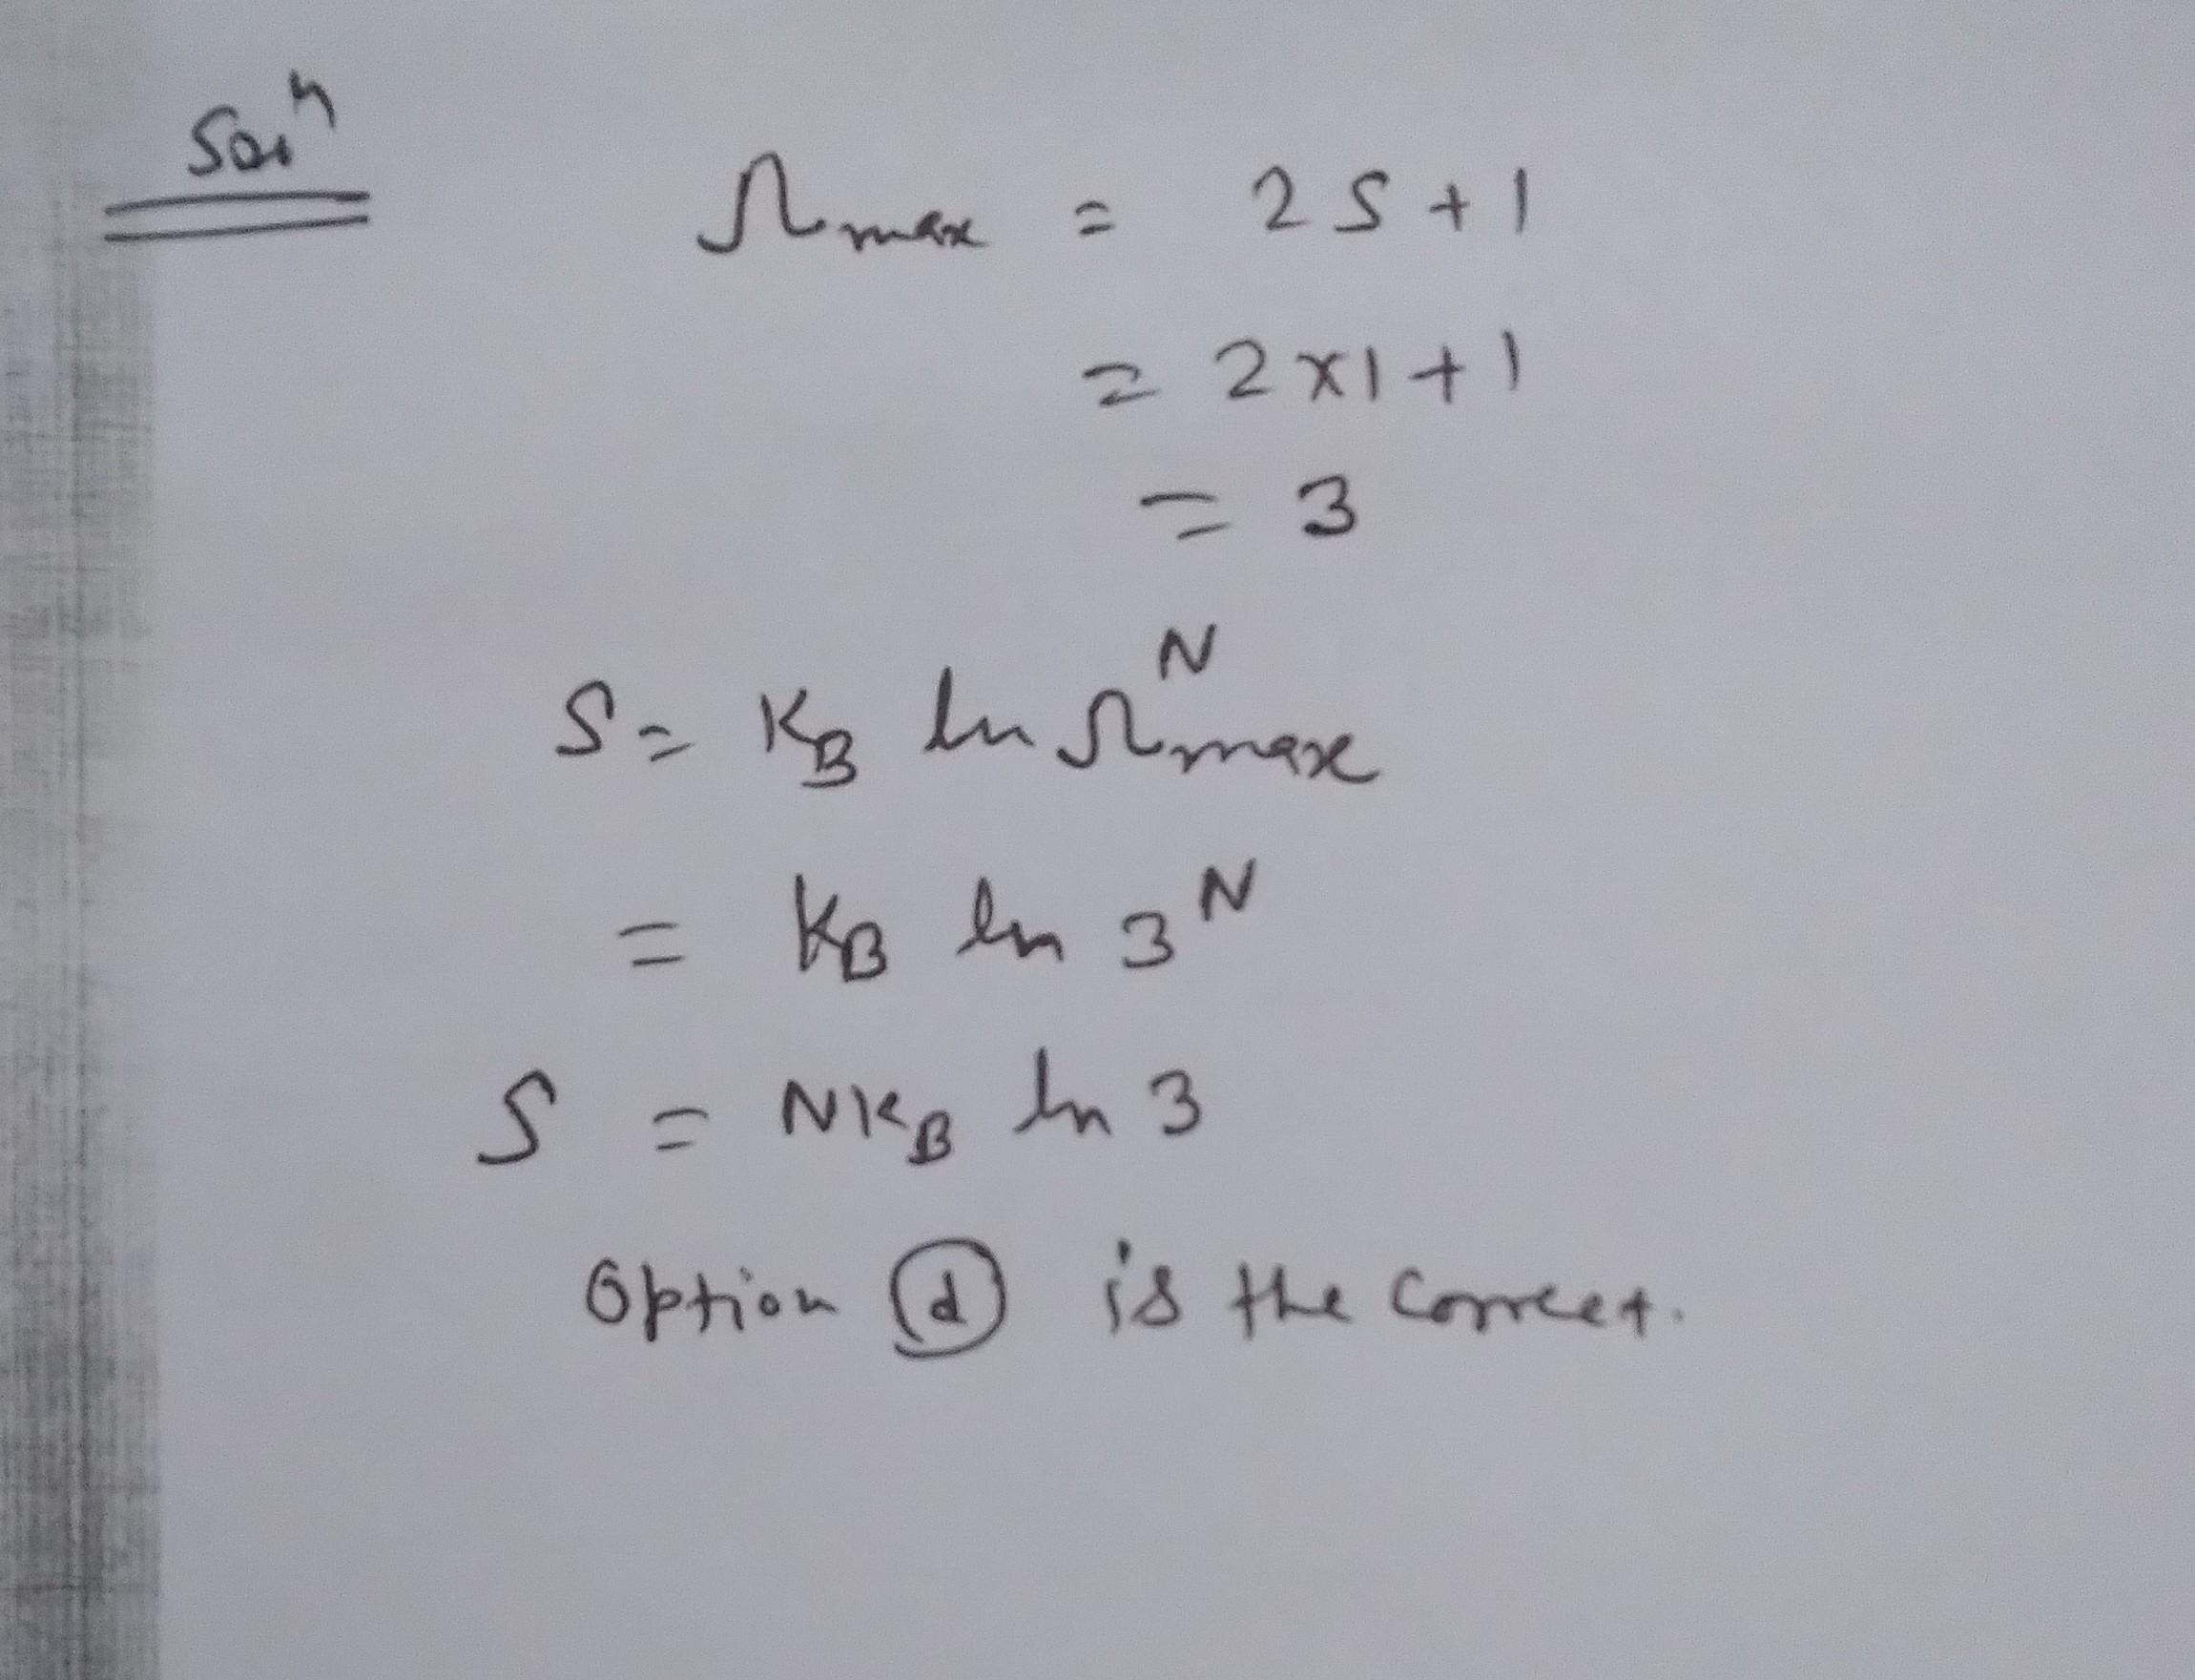 Solⁿ
Ωmax = 2S+1
= 2×1+1
= 3
S = KB ln Ωᴺmax
= KB ln 3ᴺ
S = NKB ln 3
Option ⓓ is the correct.